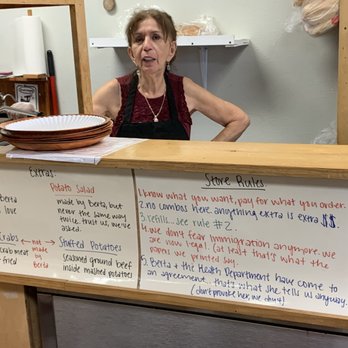 Extras:
Potato Salad
made by Berta, but
never the same way
twice. trust us, we've
asked.
Berta
love
Crabs
← not →
made by
Berta
crab meat
fried
Stuffed Potatoes
seasoned ground beef
inside mashed potatoes
Store Rules
1. know what you want, pay for what you order.
2. no combos here. anything extra is extra $$.
3. refills... see rule #2.
4. We don't fear immigration anymore we
are now legal. (at least that's what the
papers we printed say.
5. Berta & the Health Department have come to
an agreement. that's what she tells us anyway.
(don't provoke her, we don't)